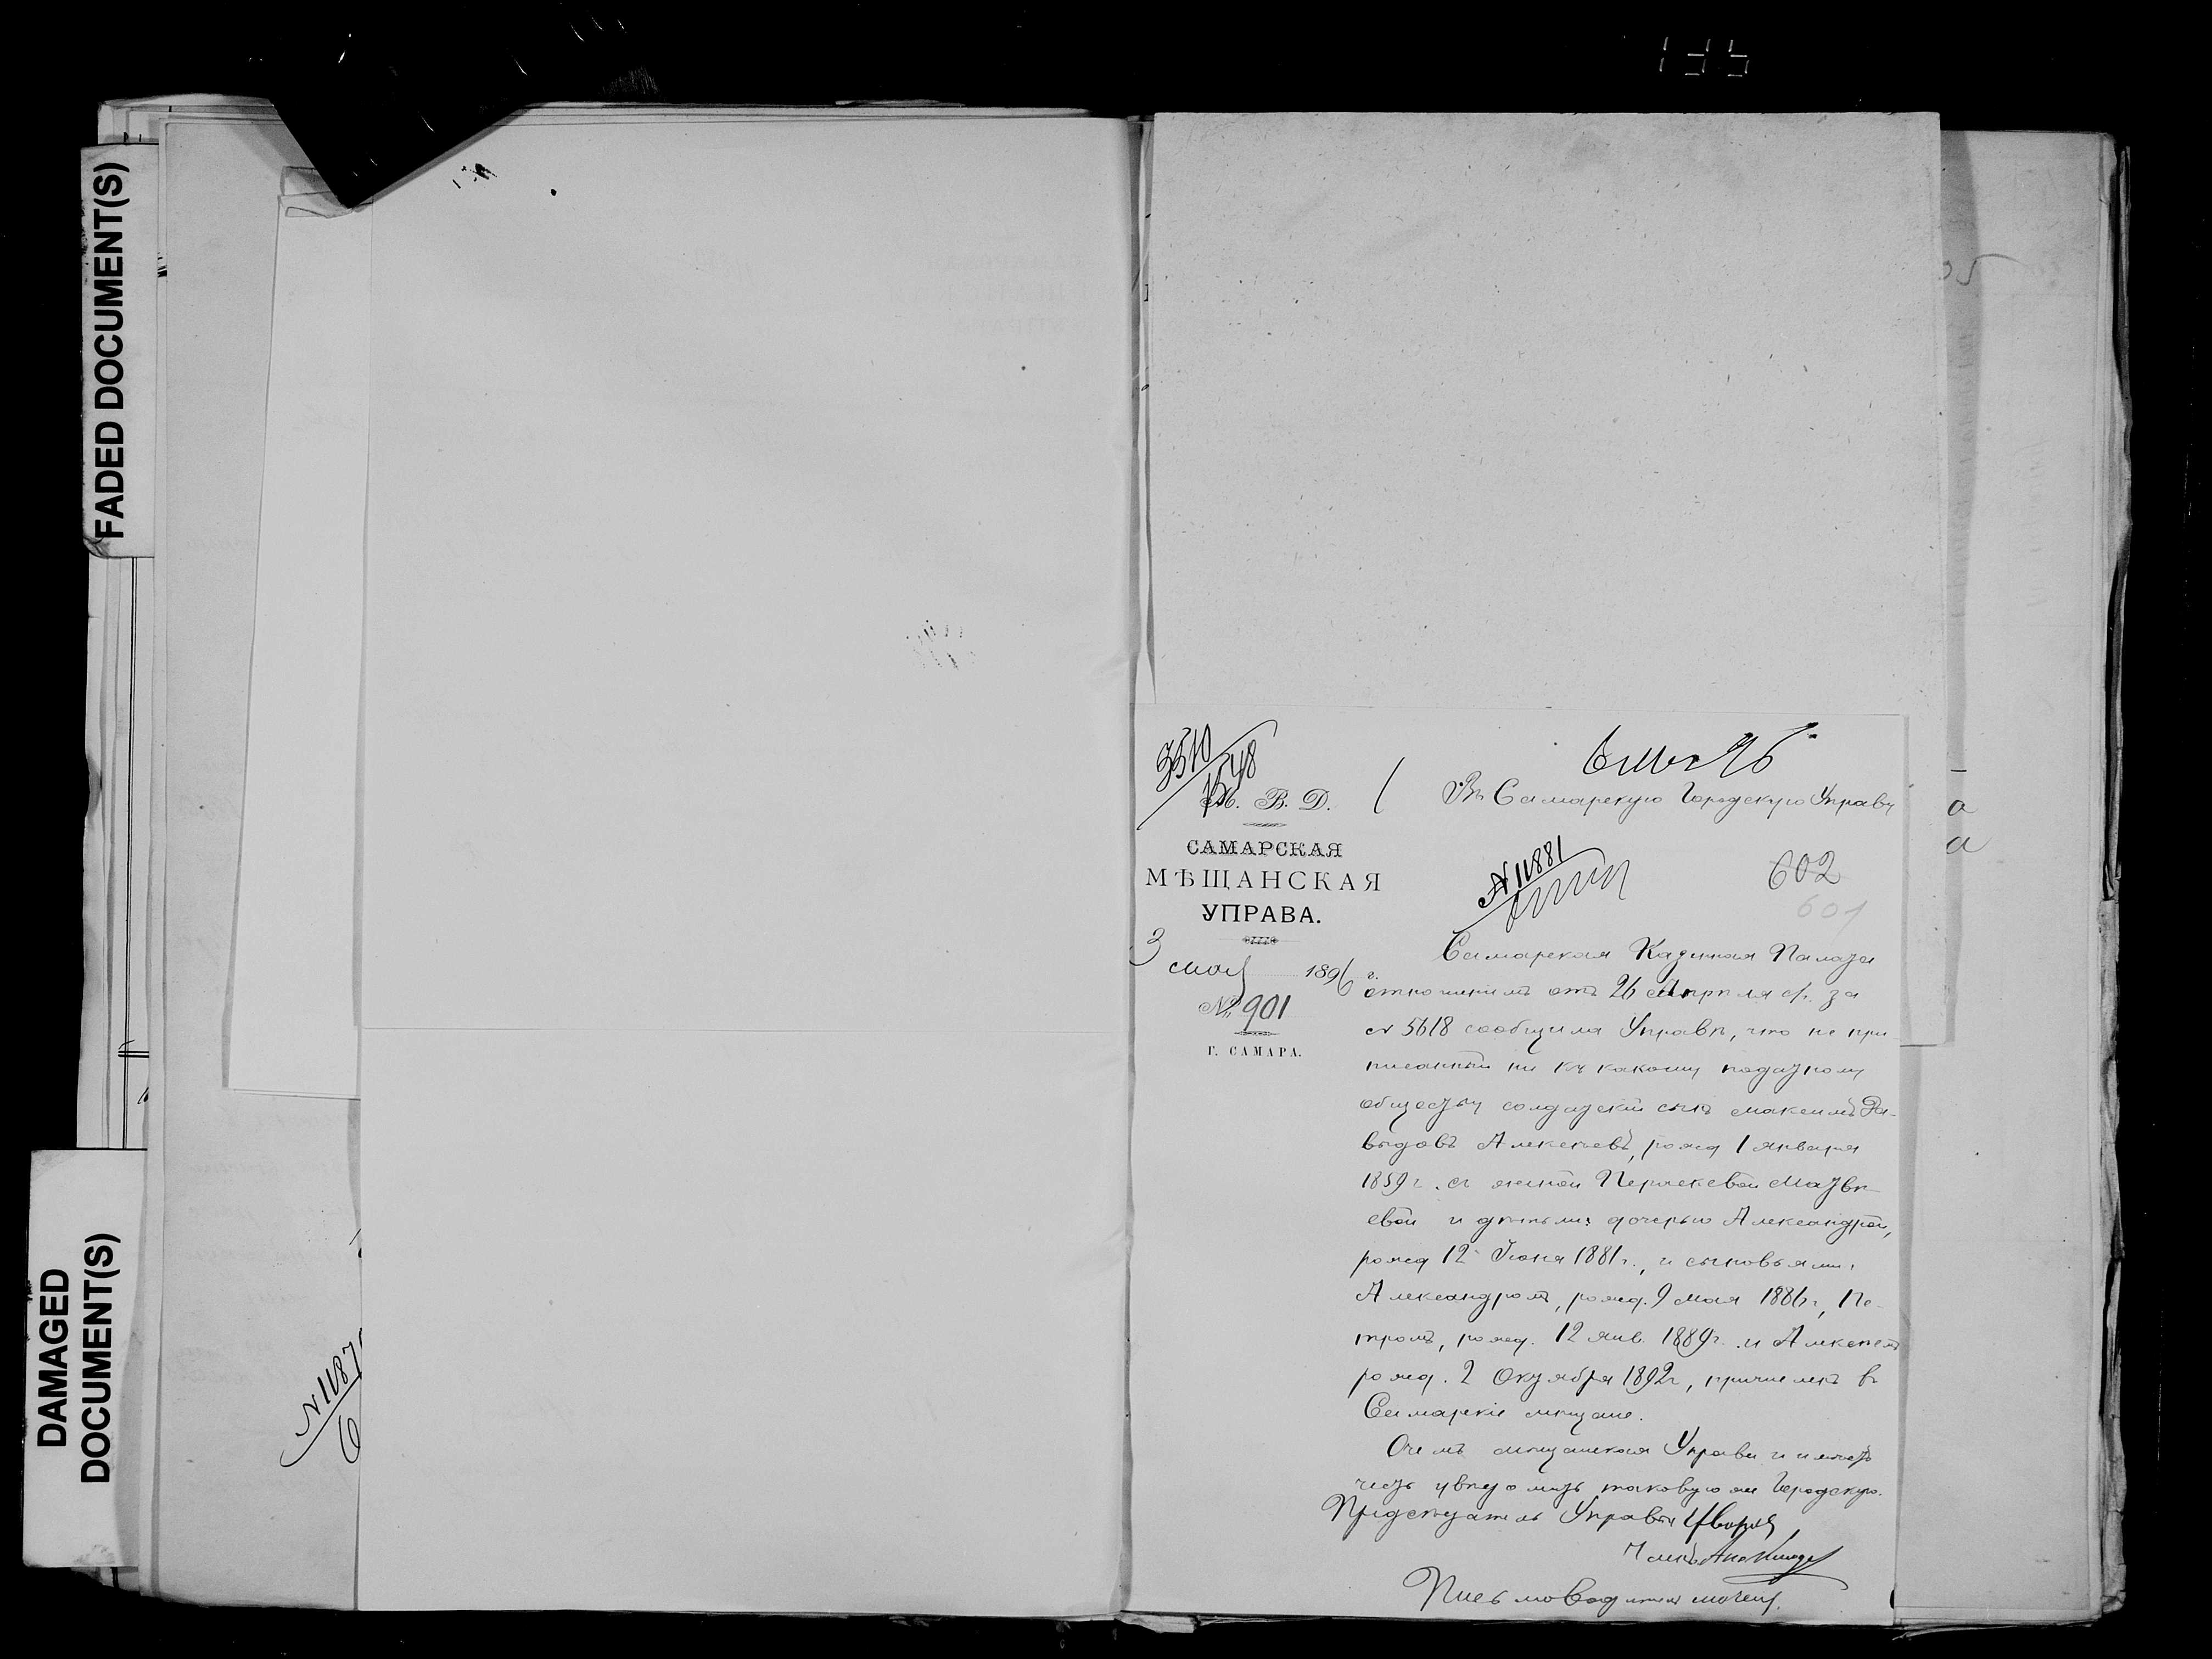 FADED DOCUMENT(S)
DAMAGED
DOCUMENT(S)
N 1187
6
3510
1548
М. В. Д.
САМАРСКАЯ
МѢЩАНСКАЯ
УПРАВА.
3 мая 1896 г.
№ 901
Г. САМАРА.
6 мая 96
Въ Самарскую Городскую Управу
N 11881
602
601
Самарская Казенная Палата
отношениемъ отъ 26 Апрѣля с/г. за
N 5618 сообщила Управѣ, что не при-
писанный ни къ какому податному
обществу солдатскій сынъ Максимъ Да-
выдовъ Алексѣевъ, рожд 1 января
1859 г. съ женой Перасковой Матвѣ-
евой и дѣтьми: дочерью Александрой,
рожд 12 Июня 1881 г., и сыновьями:
Александромъ, рожд. 9 мая 1886 г., Пе-
тромъ, рожд. 12 янв. 1889 г. и Алексѣемъ
рожд. 2 Октября 1892 г., причисленъ въ
Самарскіе мѣщане.
О чемъ мѣщанская Управа и имѣетъ
честь увѣдомить таковую же Городскую.
Предсѣдатель Управы
Членъ
Письмоводитель